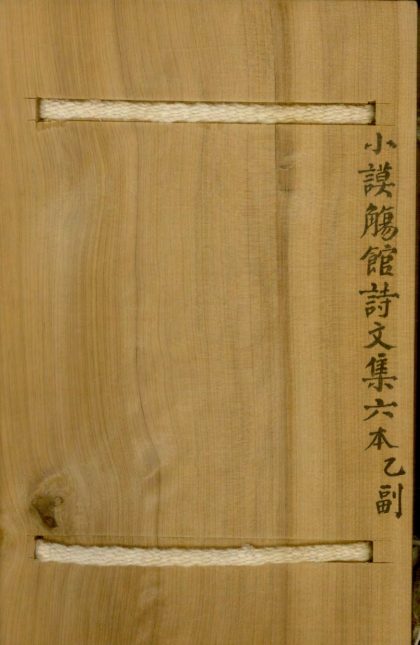 小謨觴館詩文集六本乙副